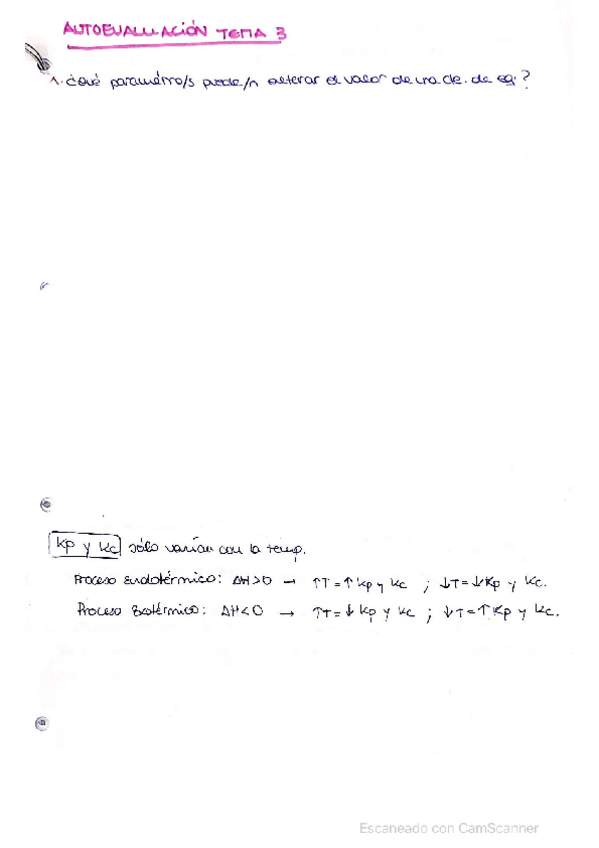 AUTOEVALUACIÓN TEMA 3
1. ¿Qué parámetro/s puede/n alterar el valor de una cte. de eq.?
Kp y Kc sólo varían con la temp.
Proceso Endotérmico: ΔH>0 → ↑T=↑Kp y Kc ; ↓T=↓Kp y Kc.
Proceso Exotérmico: ΔH<0 → ↑T=↓Kp y Kc ; ↓T=↑Kp y Kc.
Escaneado con CamScanner